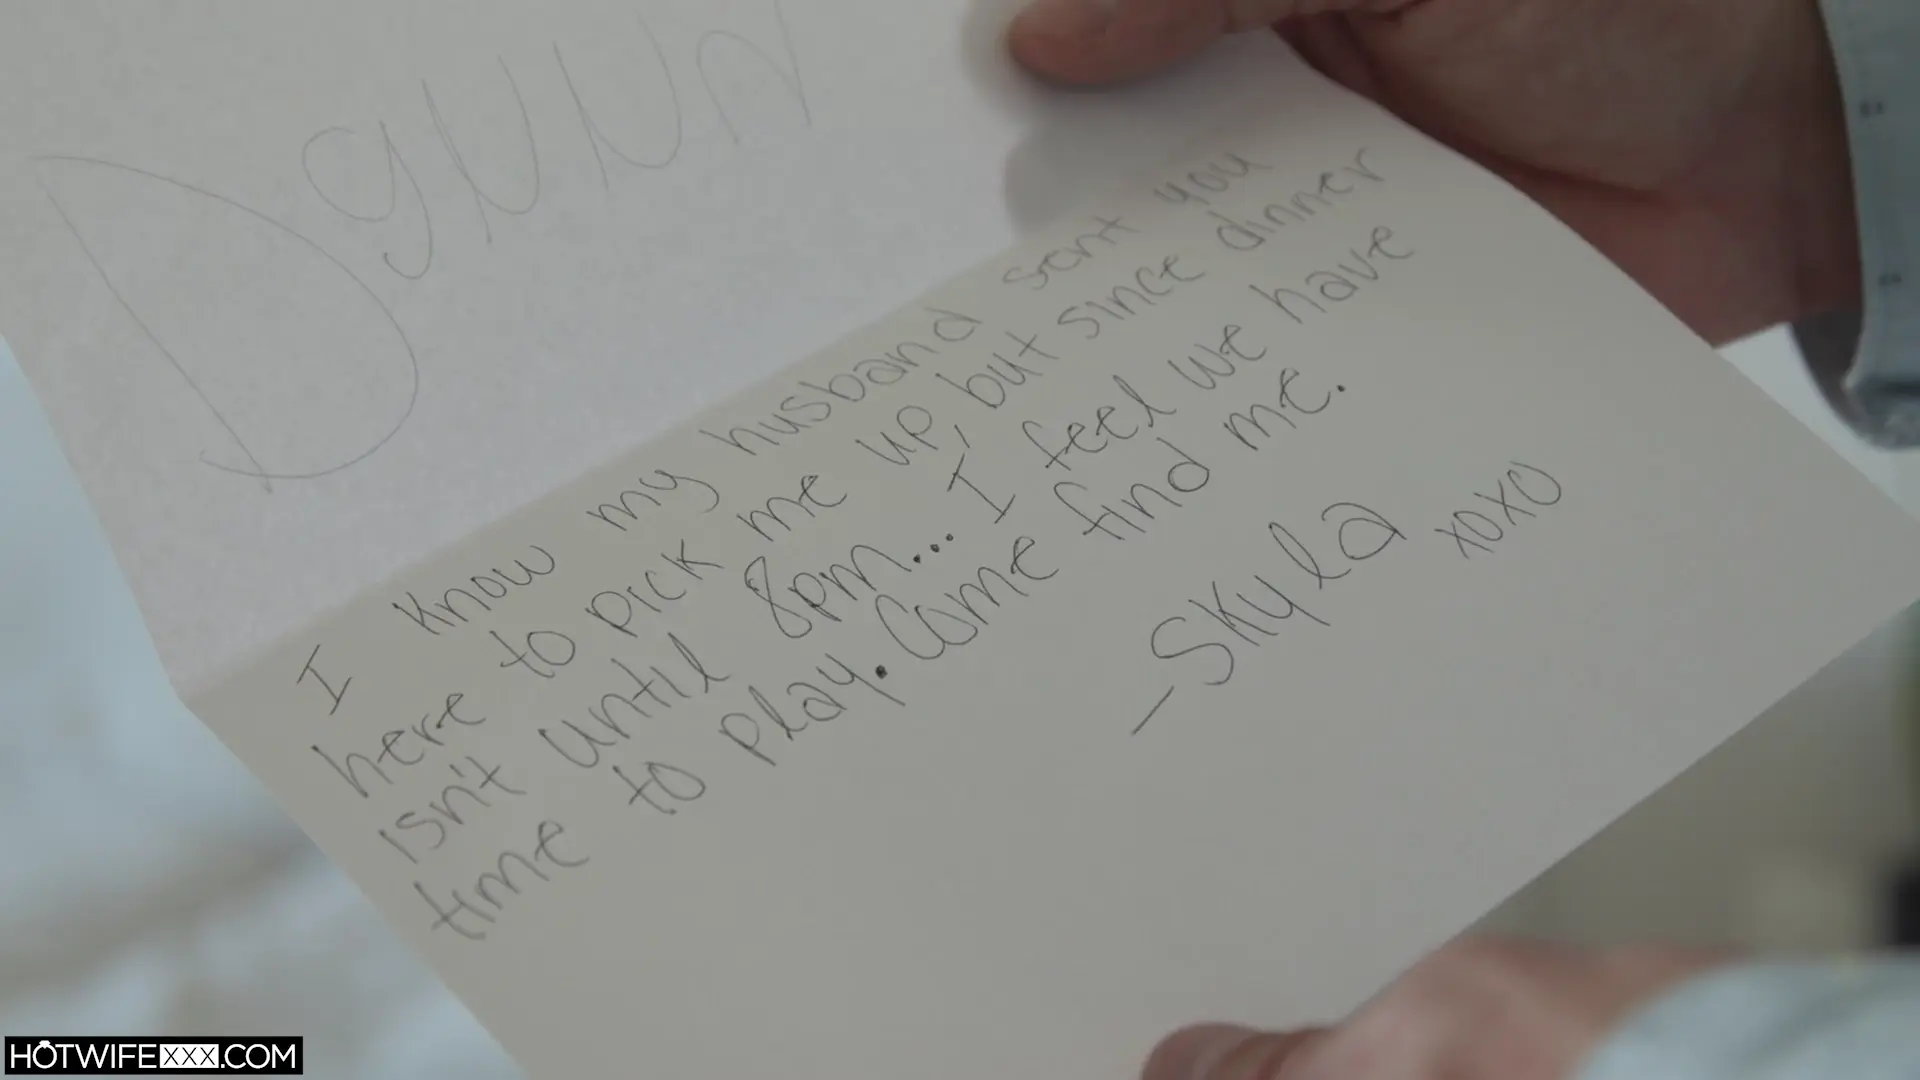 I know my husband sent you
here to pick me up, but since dinner
isn't until 8pm... I feel we have
time to play. Come find me.
-Skyla xoxo
HOTWIFEXXX.COM